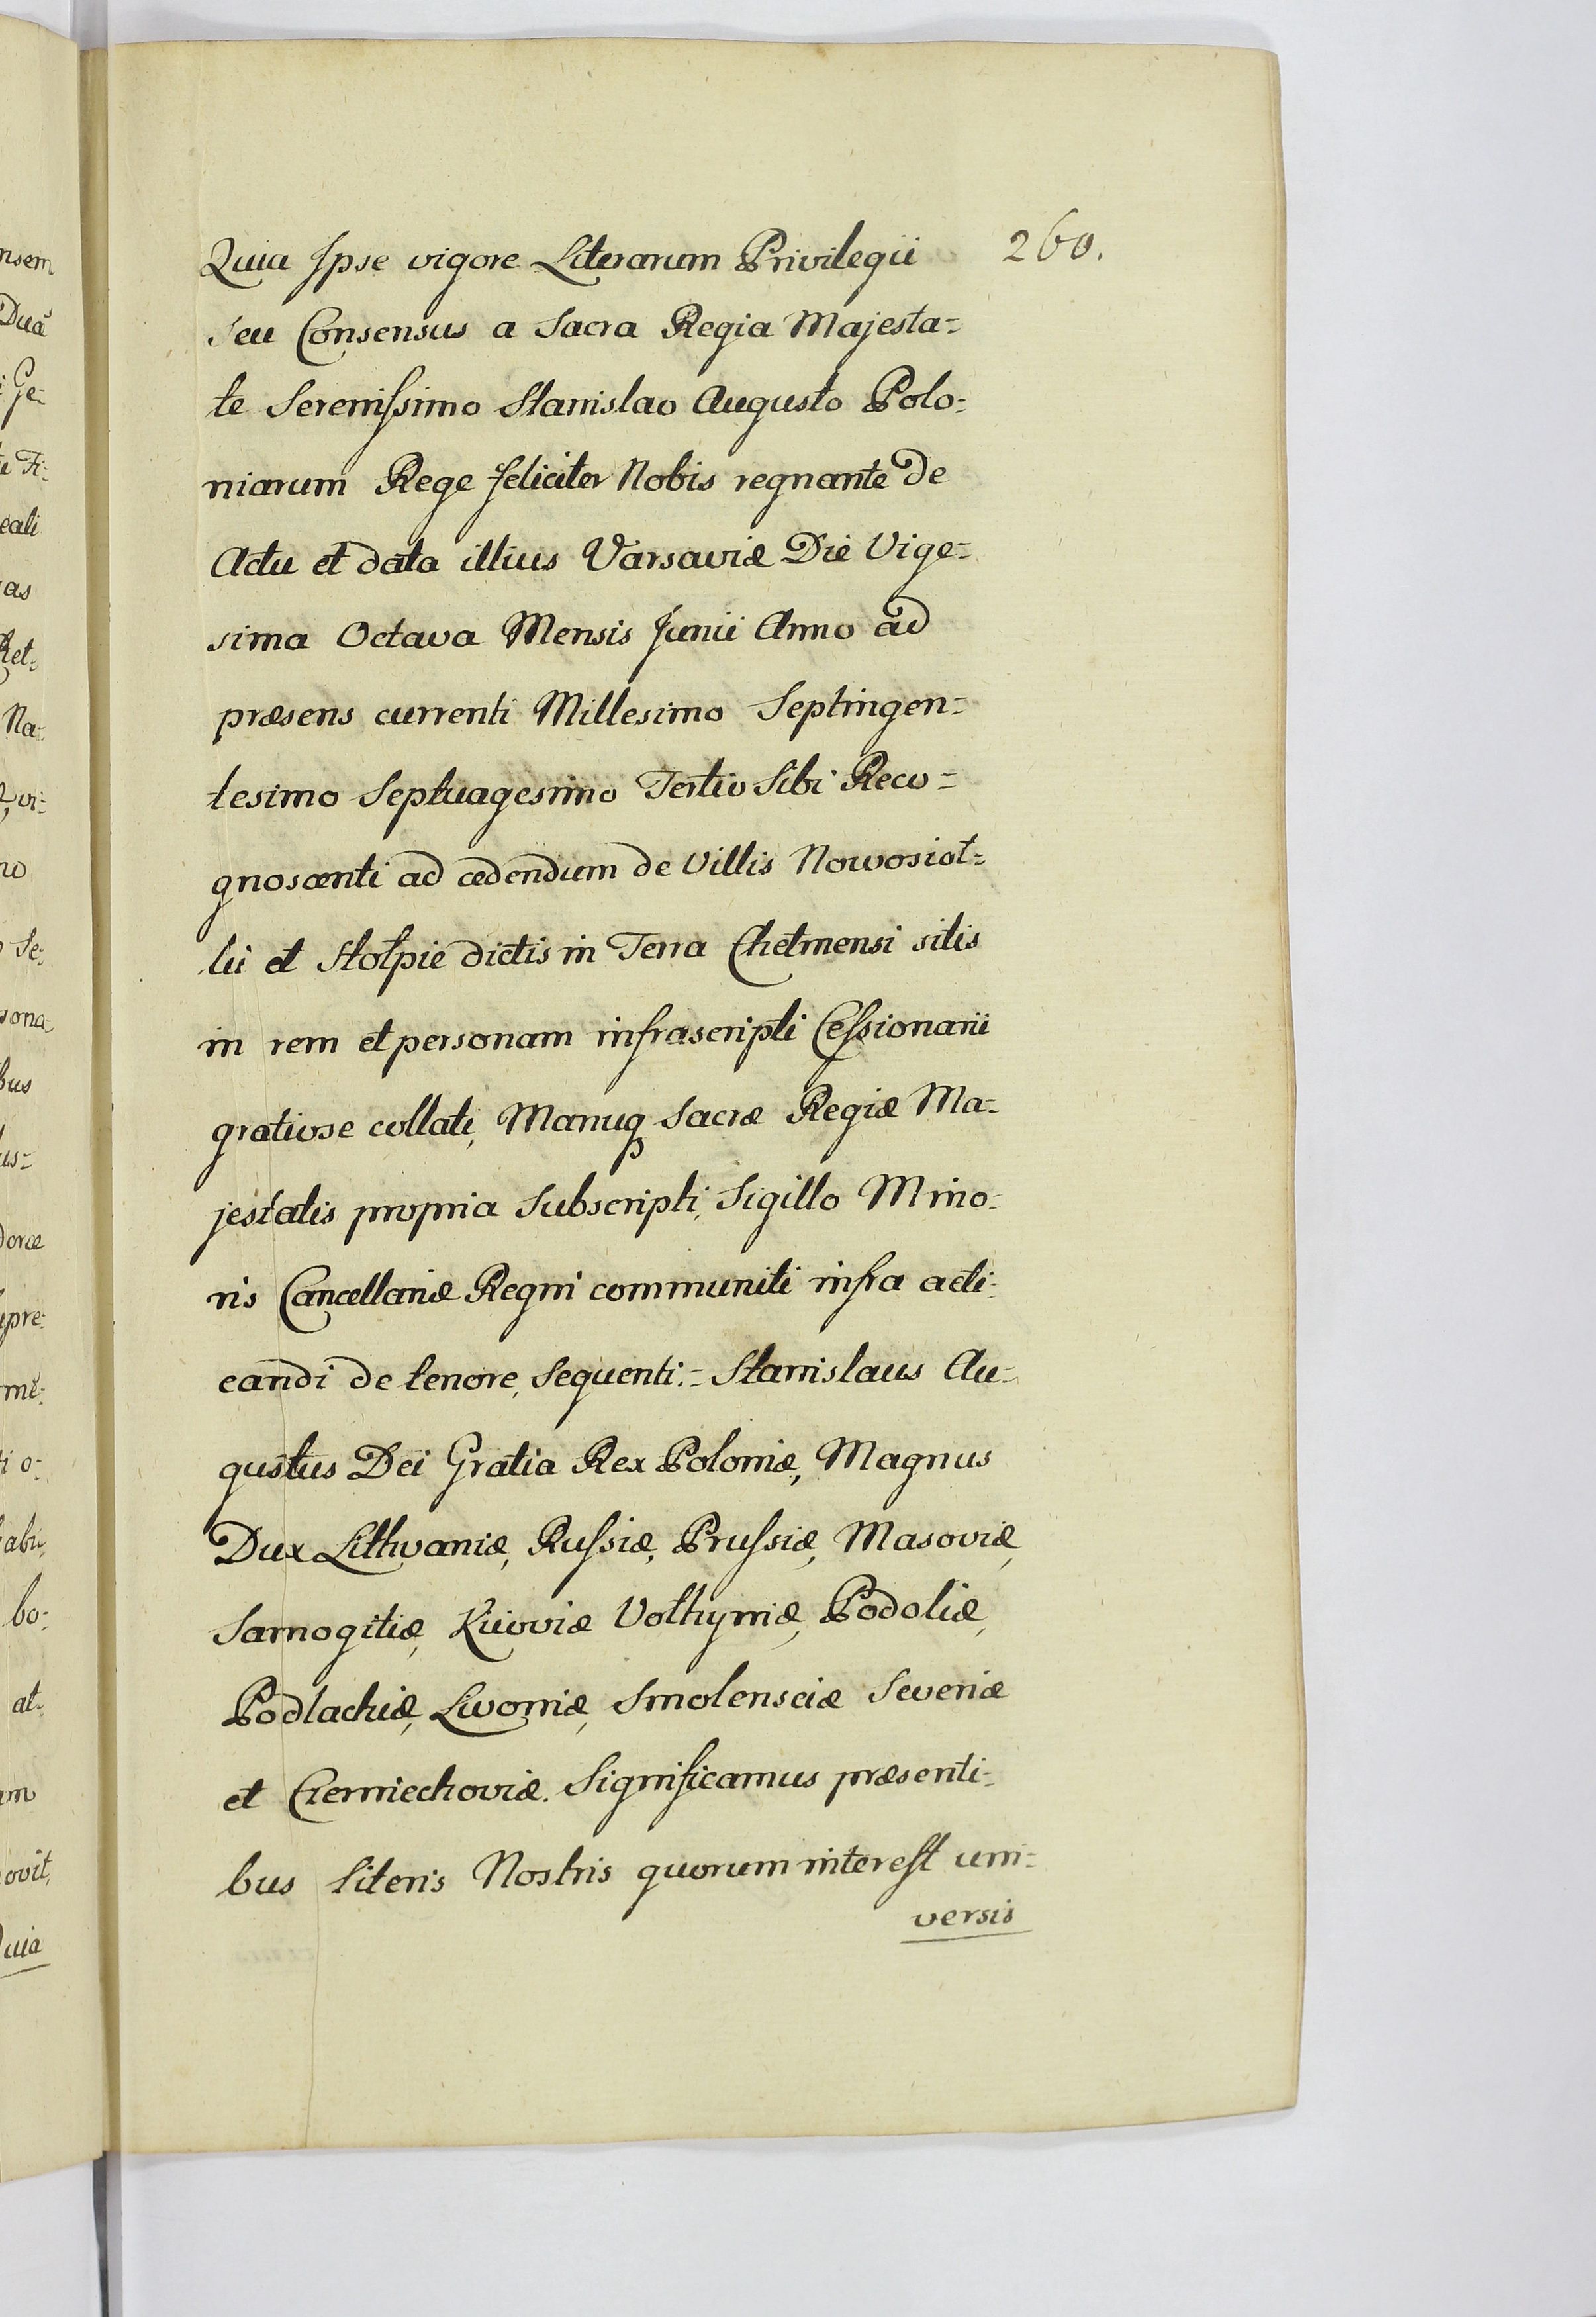 Quia Ipse vigore Literarum Privilegii 260.
seu Consensus a Sacra Regia Majesta=
te Serenissimo Stanislao Augusto Polo=
niarum Rege feliciter Nobis regnante de
Actu et data illius Varsaviæ Die Vige=
sima Octava Mensis Junii Anno ad
præsens currenti Millesimo Septingen=
tesimo Septuagesimo Tertio Sibi Reco=
gnoscenti ad cedendum de Villis Nowosioł=
lii et Stołpie dictis in Terra Chełmensi sitis
in rem et personam infrascripti Cessionarii
gratiose collati, Manuq Sacræ Regiæ Ma=
jestatis propria Subscripti, Sigillo Mino=
ris Cancellariæ Regni communiti infra acti=
candi de tenore, Sequenti:= Stanislaus Au=
gustus Dei Gratia Rex Poloniæ, Magnus
Dux Lithvaniæ, Russiæ, Prussiæ, Masoviæ,
Samogitiæ, Kiioviæ Volhyniæ, Podoliæ,
Podlachiæ, Livoniæ, Smolensciæ Severiæ
et Czerniechoviæ. Significamus præsenti=
bus literis Nostris quorum interest uni=
versis
nsem
Duã
Ge=
Fi=
eali
as
Na=
vi=
no
Se=
sona=
bus
us=
dorce
ipre=
mẽ=
ti o=
bo=
at=
ovit,
Quia